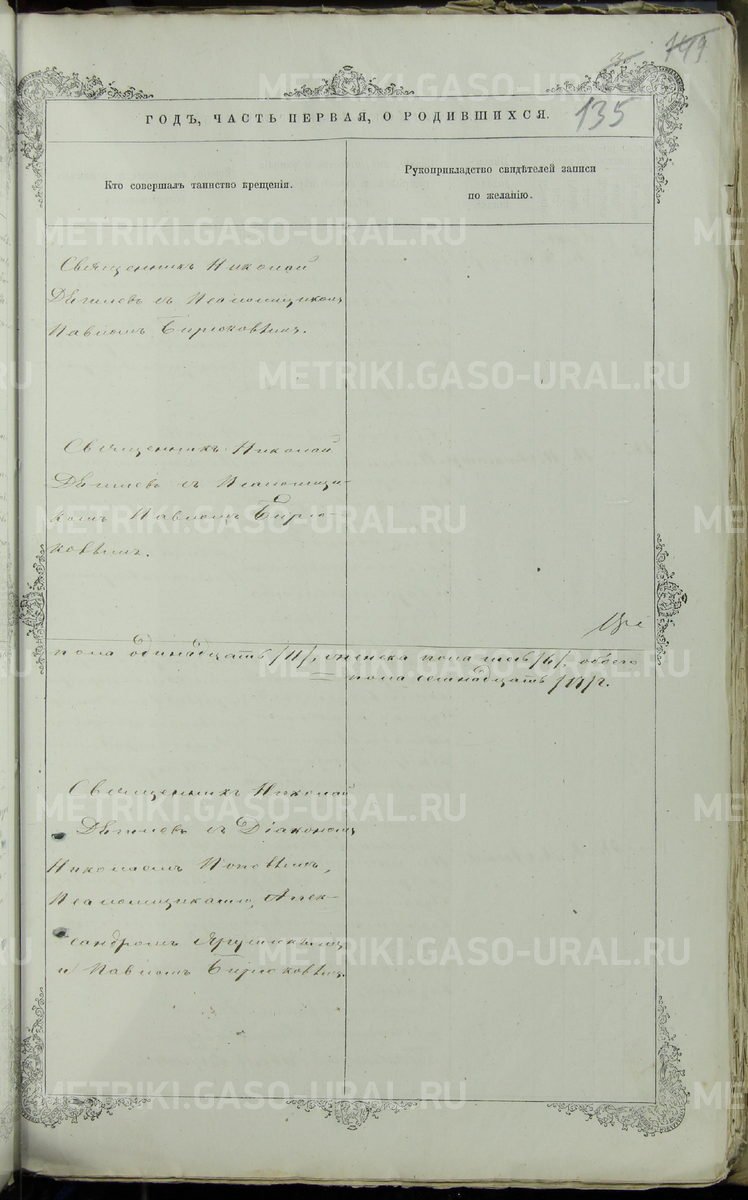 135
ГОДЪ, ЧАСТЬ ПЕРВАЯ, О РОДИВШИХСЯ.
Кто совершалъ таинство крещенія.
Рукоприкладство свидѣтелей записи
по желанію.
Священникъ Николай
съ Псаломщикомъ
Павломъ Бирюковымъ.
Священникъ Николай
съ Псаломщи-
комъ Павломъ Бирю-
ковымъ.
пола одинадцать /11/, женска пола шесть /6/, обоего
= пола семнадцать /17/.
Священникъ Николай
съ Діакономъ
Николаемъ Поповымъ,
Псаломщиками, Алек-
сандромъ
и Павломъ Бирюковымъ.
METRIKI.GASO-URAL.RU